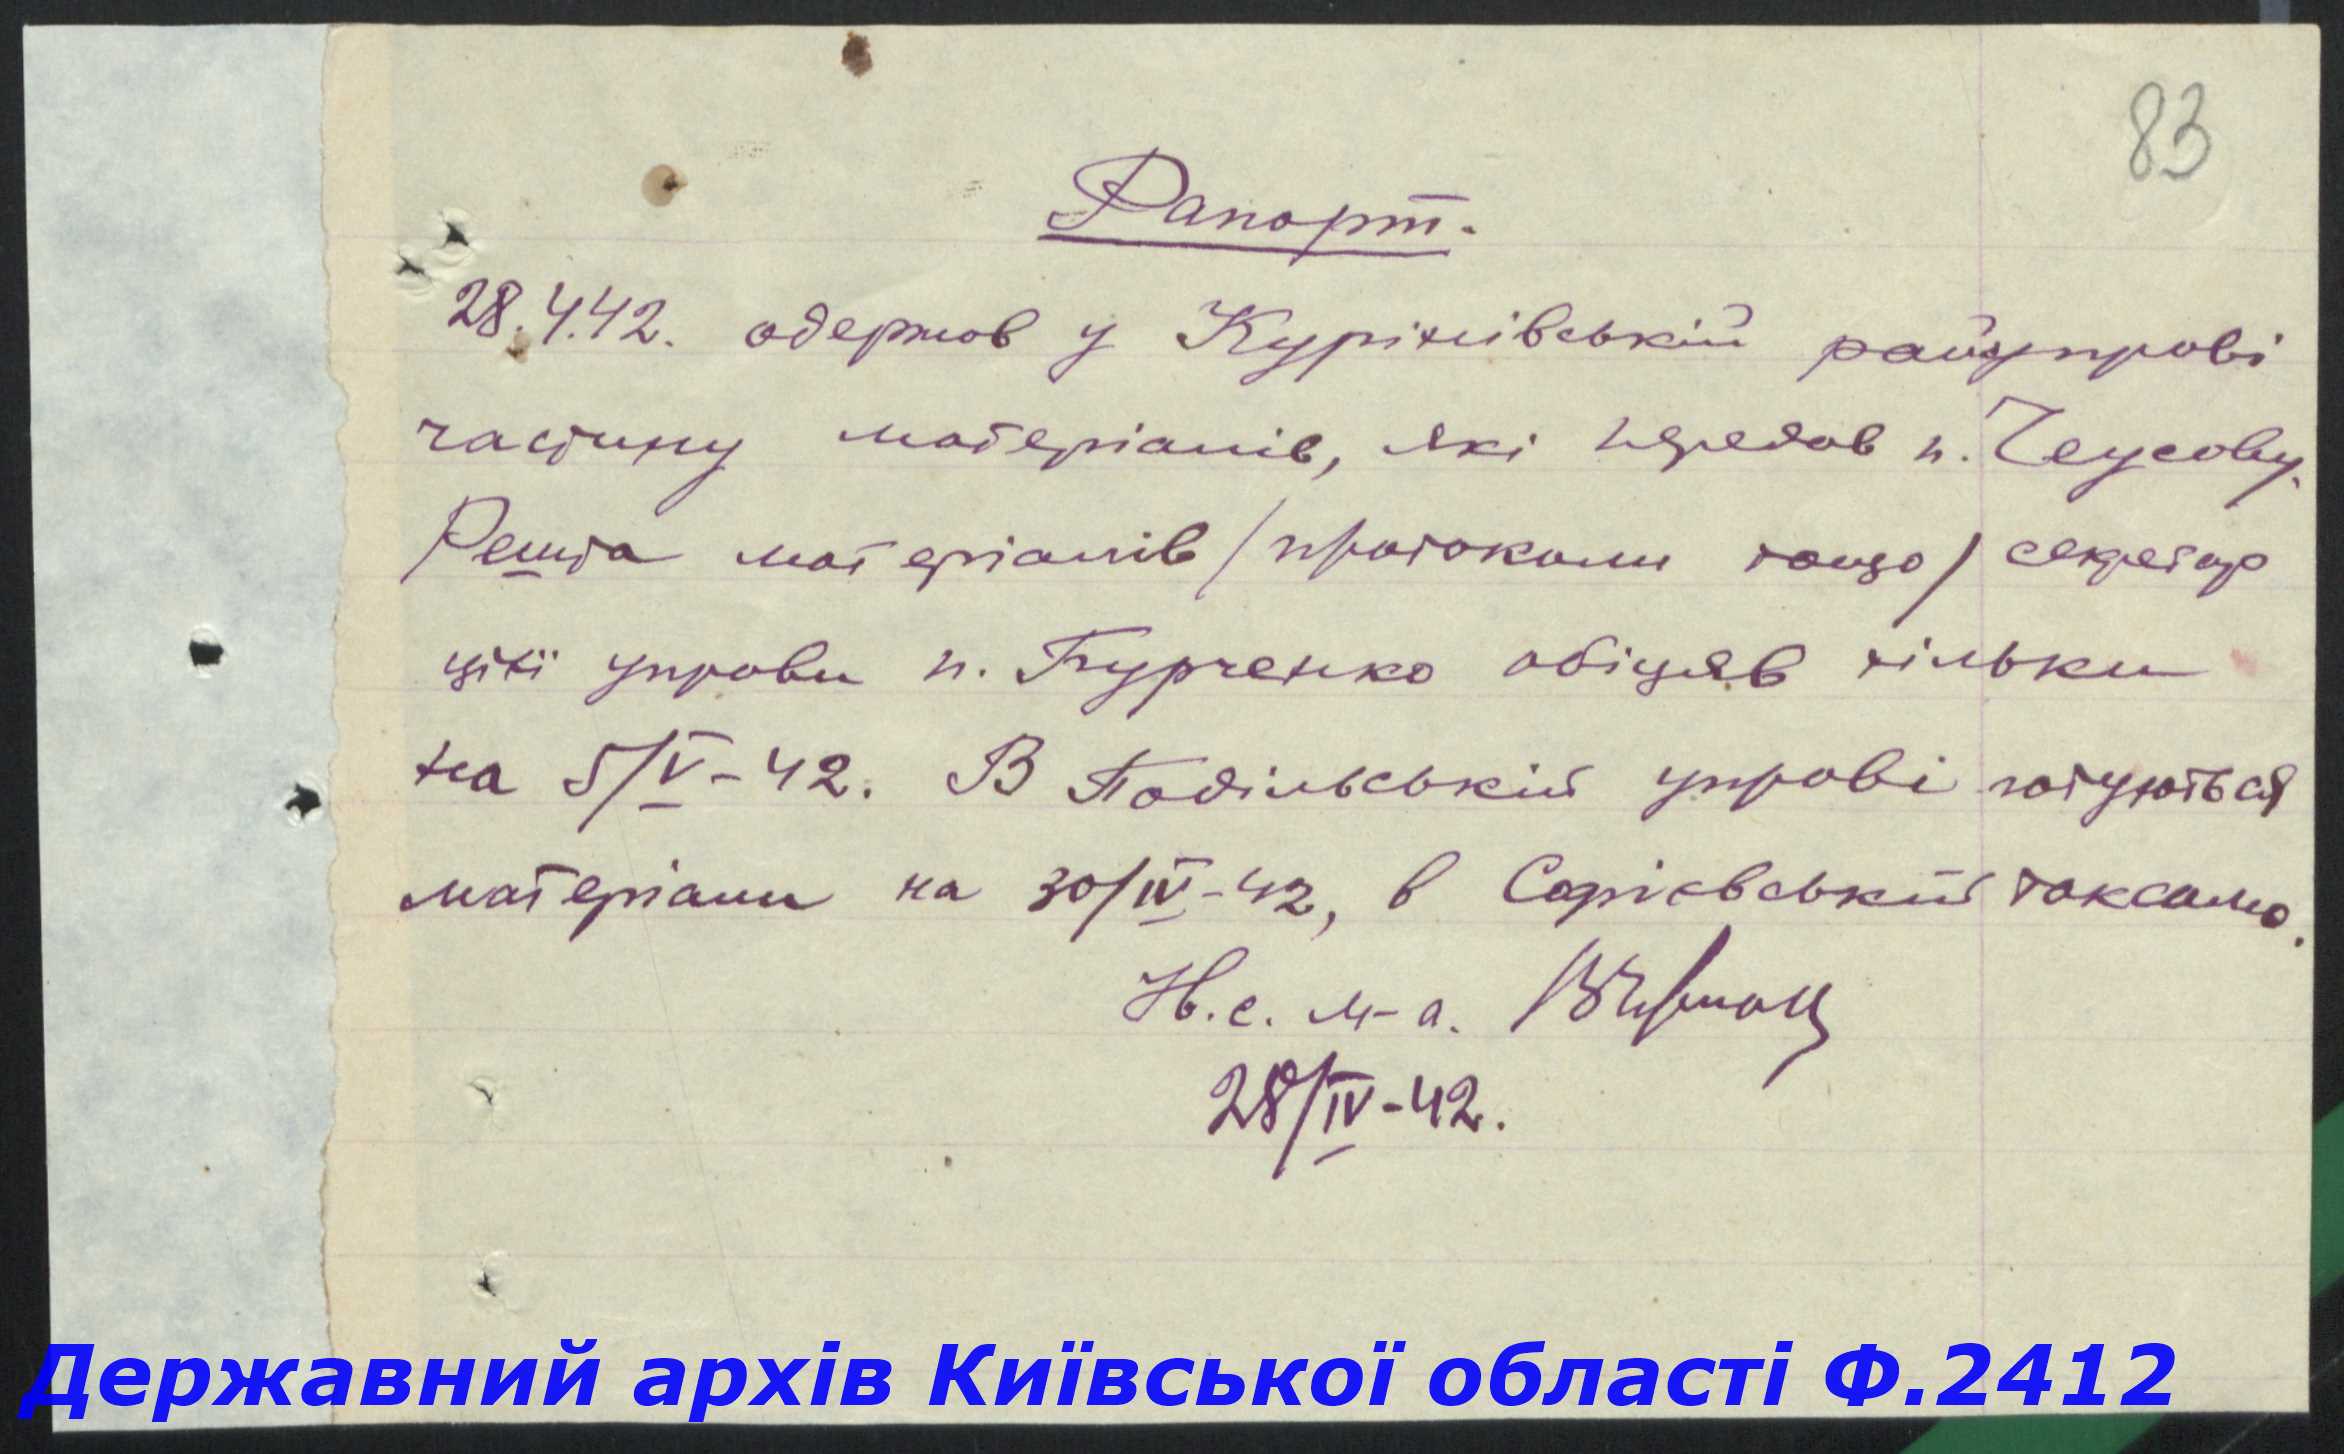 83
Рапорт.
28.4.42. одержав у Куринівській райуправі
частину матеріалів, які передав п. Чеусову.
Решта матеріалів /протоколи тощо/ секретар
цієї управи п. Бурченко обіцяв тільки
на 5/V-42. В Подільській управі готуються
матеріали на 30/IV-42, в Софієвській таксамо.
Н.с. м-а.
28/IV-42.
Державний архів Київської області Ф.2412